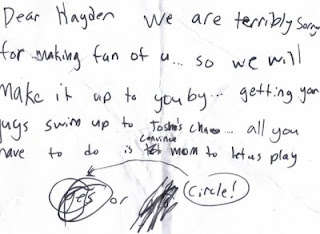 Dear Hayden We are terribly sorry
for making fun of u... so we will
Make it up to you by... getting your
up to Tosho's ... all you
have to do is convince mom to let us play
yes or circle!